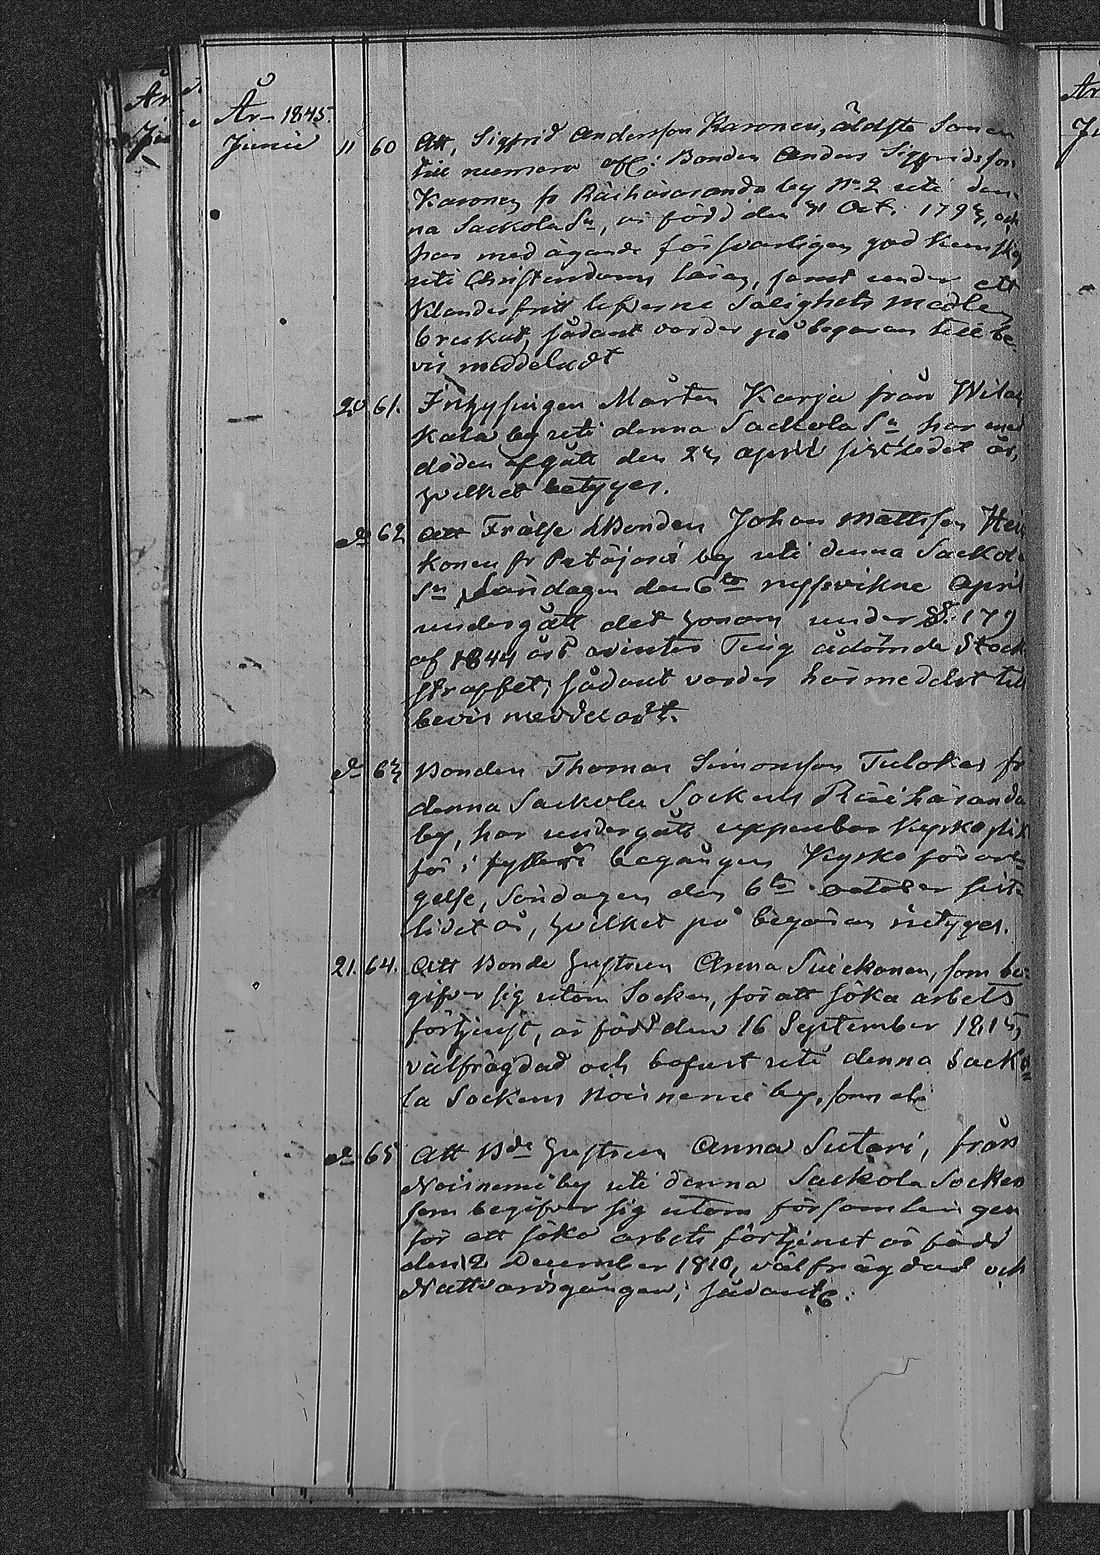 År 1845.
Junii 11 60 Att, Sigfrid Andersson Karonen, äldste Sonen
till numera afl: Bonden Anders Sigfridsson
Karonen fr Räihäranda by No 2 uti den-
na Sackola Sn, är född den 31 Oct. 1793, och
har med ägande försvarligen god kunskap
uti Christendoms läran, samt under ett
klanderfritt lefverne Salighets medlen
brukat, sådant varder på begäran till be-
vis meddeladt
20 61. Inhysingen Mårten Karja från Wilak
kala by uti denna Sackola Sn har med
döden afgått den 23 april sistledet år,
hvilket betyges.
do 62 Att Frälse Bonden Johan Mattsson Hei
konen fr Petäjärvi by uti denna Sackola
Sn Söndagen den 6te nyssvikne April
undergått det honom under §. 179
af 1844 års winter Ting ådömda Stock
straffet; sådant varder härmedelst till
bevis meddeladt.
do 63 Bonden Thomas Simonsson Tulokas fr
denna Sackola Sockens Räihäranda
by, har undergått uppenbar kyrkoplikt
för i fylleri begången kyrko förar-
gelse, Söndagen den 6te october sist-
lidet år, hvilket på begäran betyges.
21. 64. Att Bonde hustrun Anna Suickanen, som be-
gifver sig utom Socken, för att söka arbets
förtjenst, är född den 16 September 1815,
välfrägdad och bofast uti denna Sacko-
la Sockens Noisnemi by, som etc
do 65 Att Bde hustrun Anna Sutari, från
Noisnemi by uti denna Sackola Socken
som begifver sig utom församlingen
för att söka arbets förtjenst är född
den 12 December 1810, välfrägdad och
Nattvardsgången; sådant &.